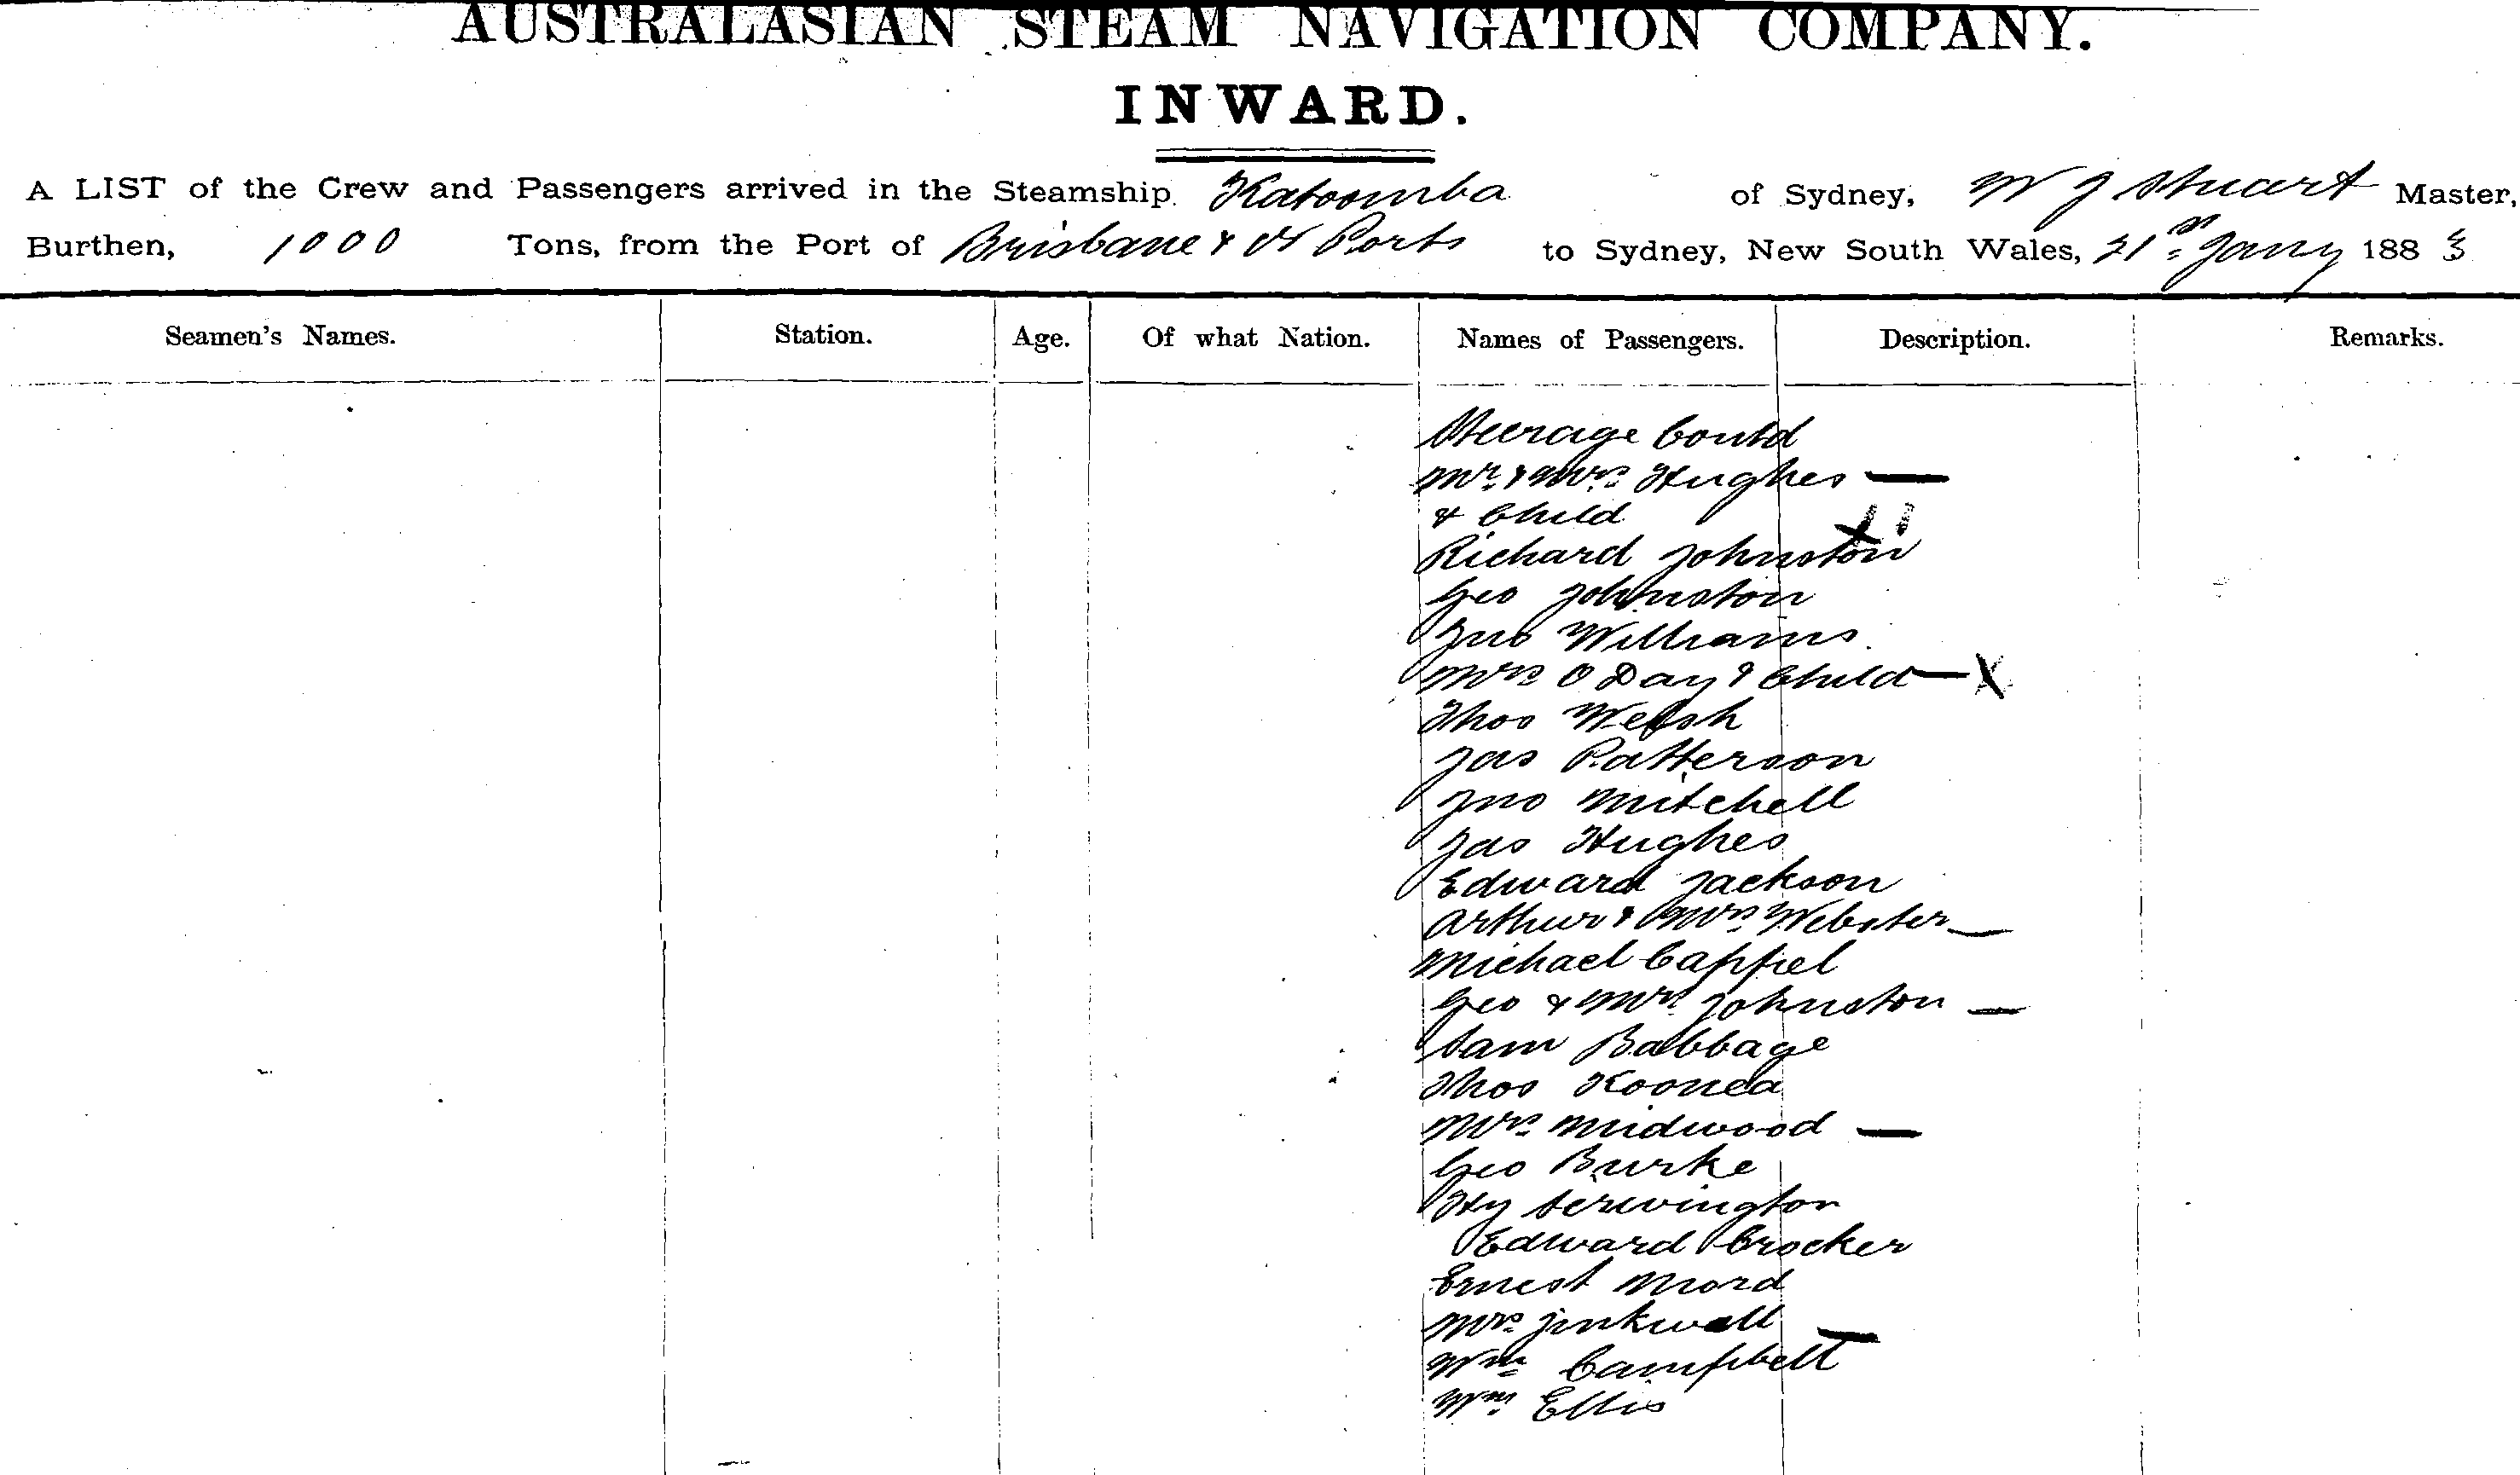 AUSTRALASIAN STEAM NAVIGATION COMPANY.
INWARD.
A LIST of the Crew and Passengers arrived in the Steamship Katoomba of Sydney, W J Stuart Master,
Burthen, 1000 Tons, from the Port of Brisbane & Ports to Sydney, New South Wales, 21st Jany 1883
Seamen's Names. Station. Age. Of what Nation. Names of Passengers. Description. Remarks.
Steerage Contd
Mr & Mrs Hughes —
& Child
Richard Johnston
Geo Johnston
Jno Williams
Mrs O Day & Child — X
Thos Welsh
Jas Patterson
Jno Mitchell
Jas Hughes
Edward Jackson
Arthur & Mrs Webster —
Michael Cappel
Geo & Mrs Johnston —
Sam Babbage
Thos
Mrs Midwood —
Geo Burke
Hy Servington
Edward Crocker
Ernest Mord
Mrs Jinkwell —
Wm Campbell
Wm Ellis